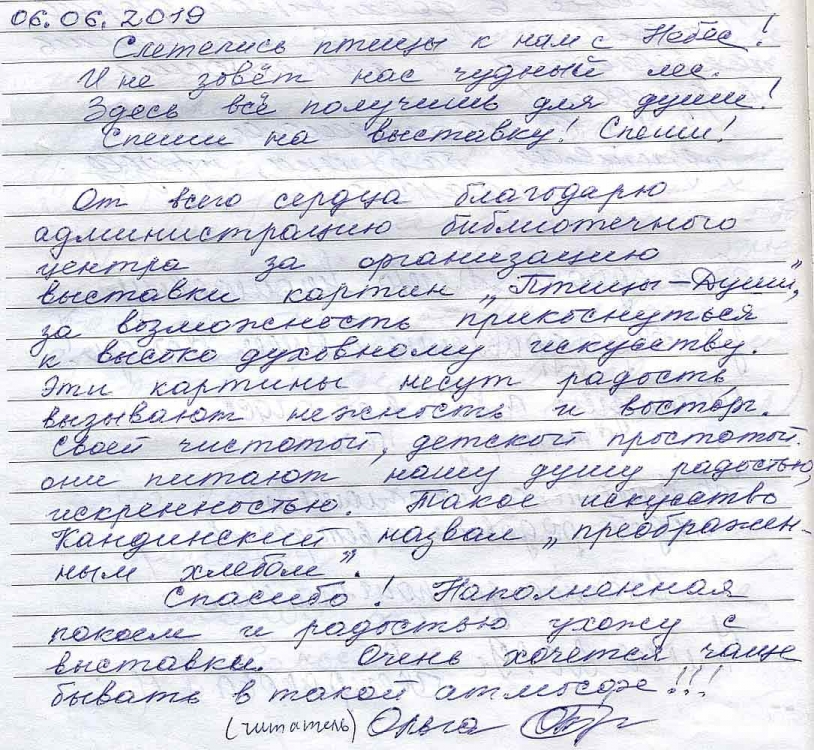 06.06.2019
Слетелись птицы к нам с Небес!
И не зовёт нас чудный лес.
Здесь всё получишь для души!
Спеши на выставку! Спеши!
От всего сердца благодарю
администрацию библиотечного
центра за организацию
выставки картин „Птицы-Души",
за возможность прикоснуться
к высоко духовному искусству.
Эти картины несут радость,
вызывают нежность и восторг.
Своей чистотой, детской простотой
они питают нашу душу радостью,
искренностью. Такое искусство
Кандинский назвал „преображен-
ным хлебом".
Спасибо! Наполненная
покоем и радостью ухожу с
выставки. Очень хочется чаще
бывать в такой атмосфере!!!
(читатель) Ольга